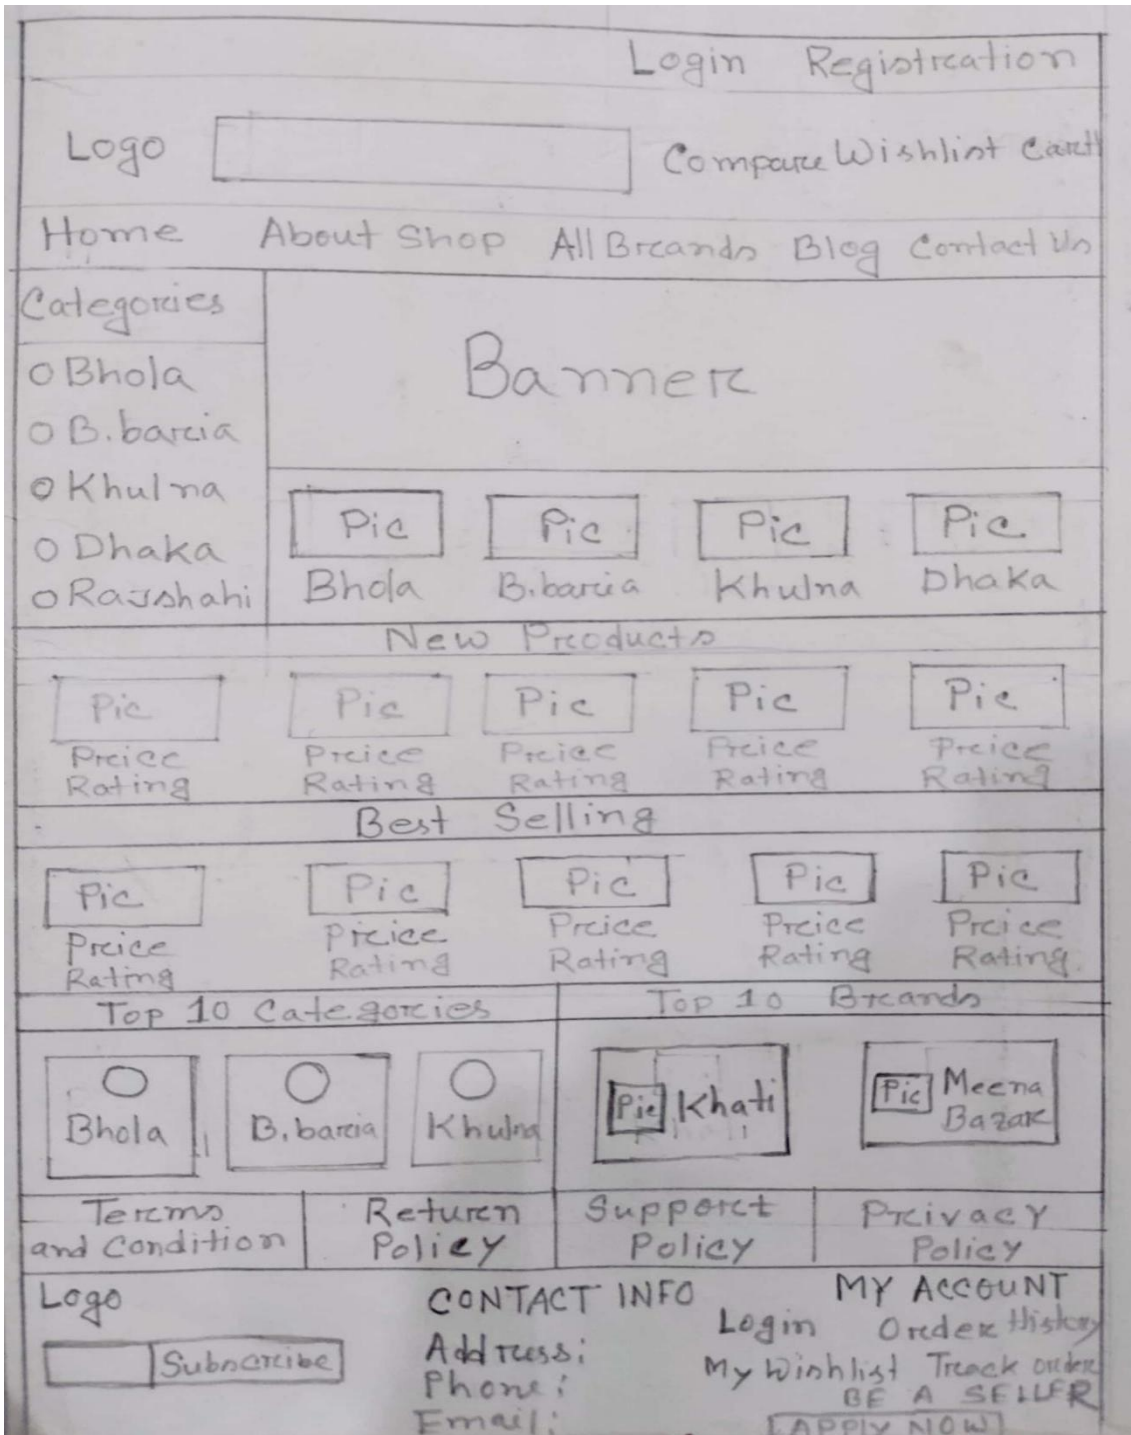 Login Registration
Logo Compare Wishlist Cart
Home About Shop All Brands Blog Contact Us
Categories
Bhola
B.baria
Khulna
Dhaka
Rajshahi
Banner
Pic Pic Pic Pic
Bhola B.baria Khulna Dhaka
New Products
Pic Pic Pic Pic Pic
Price Price Price Price Price
Rating Rating Rating Rating Rating
Best Selling
Pic Pic Pic Pic Pic
Price Price Price Price Price
Rating Rating Rating Rating Rating
Top 10 Categories
Bhola B.baria Khulna
Top 10 Brands
Pic Khati
Pic Meena
Bazar
Terms
and Condition
Return
Policy
Support
Policy
Privacy
Policy
Logo
Subscribe
CONTACT INFO
Address:
Phone:
Email:
MY ACCOUNT
Login Order History
My Wishlist Track order
BE A SELLER
APPLY NOW